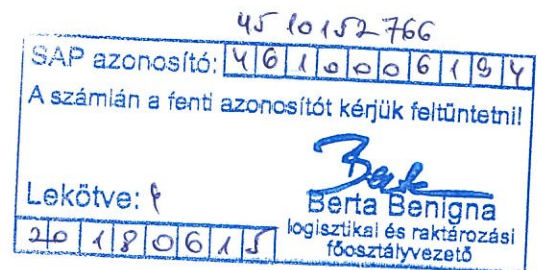 45 10152766
SAP azonosító: 4610006194
A számlán a fenti azonosítót kérjük feltüntetni!
Lekötve:
Berta Benigna
logisztikai és raktározási
főosztályvezető
20180615